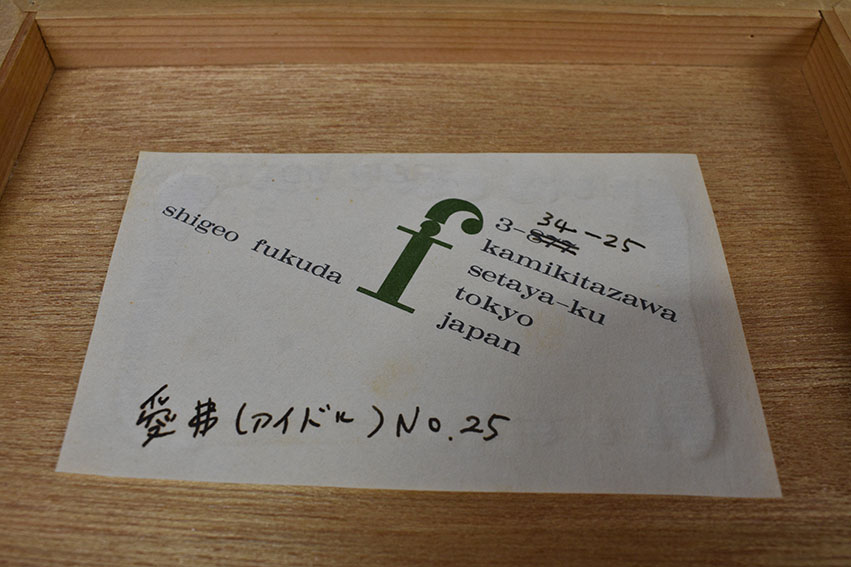 shigeo fukuda
f
34-25
3-877
kamikitazawa
setaya-ku
tokyo
japan
愛弗(アイドル)No.25